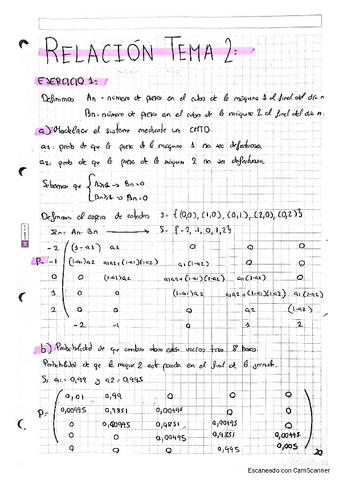 RELACIÓN TEMA 2:
EJERCICIO 1:
Definimos An = número de piezas en el cubo de la máquina 1 al final del día n.
Bn = número de piezas en el cubo de la máquina 2 al final del día n.
a) Modelizar el sistema mediante un CMTD
a1: prob de que la pieza de la maquina 1 no sea defectuosa.
a2: prob de que la pieza de la maquina 2 no sea defectuosa.
Sabemos que { An≥1 → Bn=0
Bn≥1 → An=0
Definimos el espacio de estados S = {(0,0), (1,0), (0,1), (2,0), (0,2)}
Xn = An - Bn → S = {-2, -1, 0, 1, 2}
-2 (1-a1) a1 0 0 0
P= -1 (1-a1)a2 a1a2+(1-a1)(1-a2) a1(1-a2) 0 0
0 0 (1-a1)a2 a1a2+(1-a1)(1-a2) a1(1-a2) 0
1 0 0 (1-a1)a2 a1a2+(1-a1)(1-a2) a1(1-a2)
2 0 0 0 a2 (1-a2)
-2 -1 0 1 2
b) Probabilidad de que ambos cubos estén vacíos tras 8 horas.
Probabilidad de que la maquina 2 esté parada en el final de la jornada.
Si a1 = 0,99 y a2 = 0,995
0,01 0,99 0 0 0
P= 0,00995 0,9851 0,00495 0 0
0 0,00995 0,9851 0,00495 0
0 0 0,00995 0,9851 0,00495
0 0 0 0,995 0,005
Escaneado con CamScanner